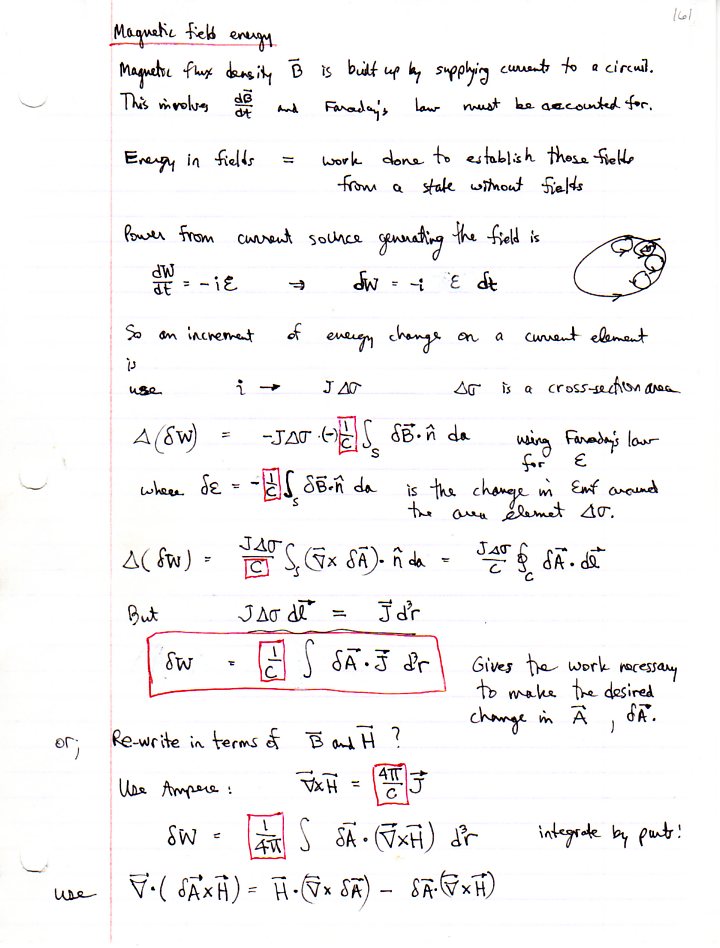 161
Magnetic field energy
Magnetic flux density B⃗ is built up by supplying currents to a circuit.
This involves dB⃗/dt and Faraday's law must be accounted for.
Energy in fields = work done to establish those fields
from a state without fields
Power from current source generating the field is
dW/dt = -iℰ ⇒ δW = -i ℰ dt
So an increment of energy change on a current element
is
use i → JΔσ Δσ is a cross-section area
Δ(δW) = -JΔσ·(-)1/c ∫_S δB⃗·n̂ da using Faraday's law
for ℰ
where δℰ = -1/c ∫_S δB⃗·n̂ da is the change in Emf around
the area elemet Δσ.
Δ(δW) = JΔσ/c ∫_S (∇⃗×δA⃗)·n̂ da = JΔσ/c ∮_C δA⃗·dl⃗
But JΔσ dl⃗ = J⃗ d³r
δW = 1/c ∫ δA⃗·J⃗ d³r Gives the work necessary
to make the desired
change in A⃗, δA⃗.
or; Re-write in terms of B⃗ and H⃗ ?
Use Ampere: ∇⃗×H⃗ = 4π/c J⃗
δW = 1/4π ∫ δA⃗·(∇⃗×H⃗) d³r integrate by parts!
use ∇⃗·(δA⃗×H⃗) = H⃗·(∇⃗×δA⃗) - δA⃗·(∇⃗×H⃗)